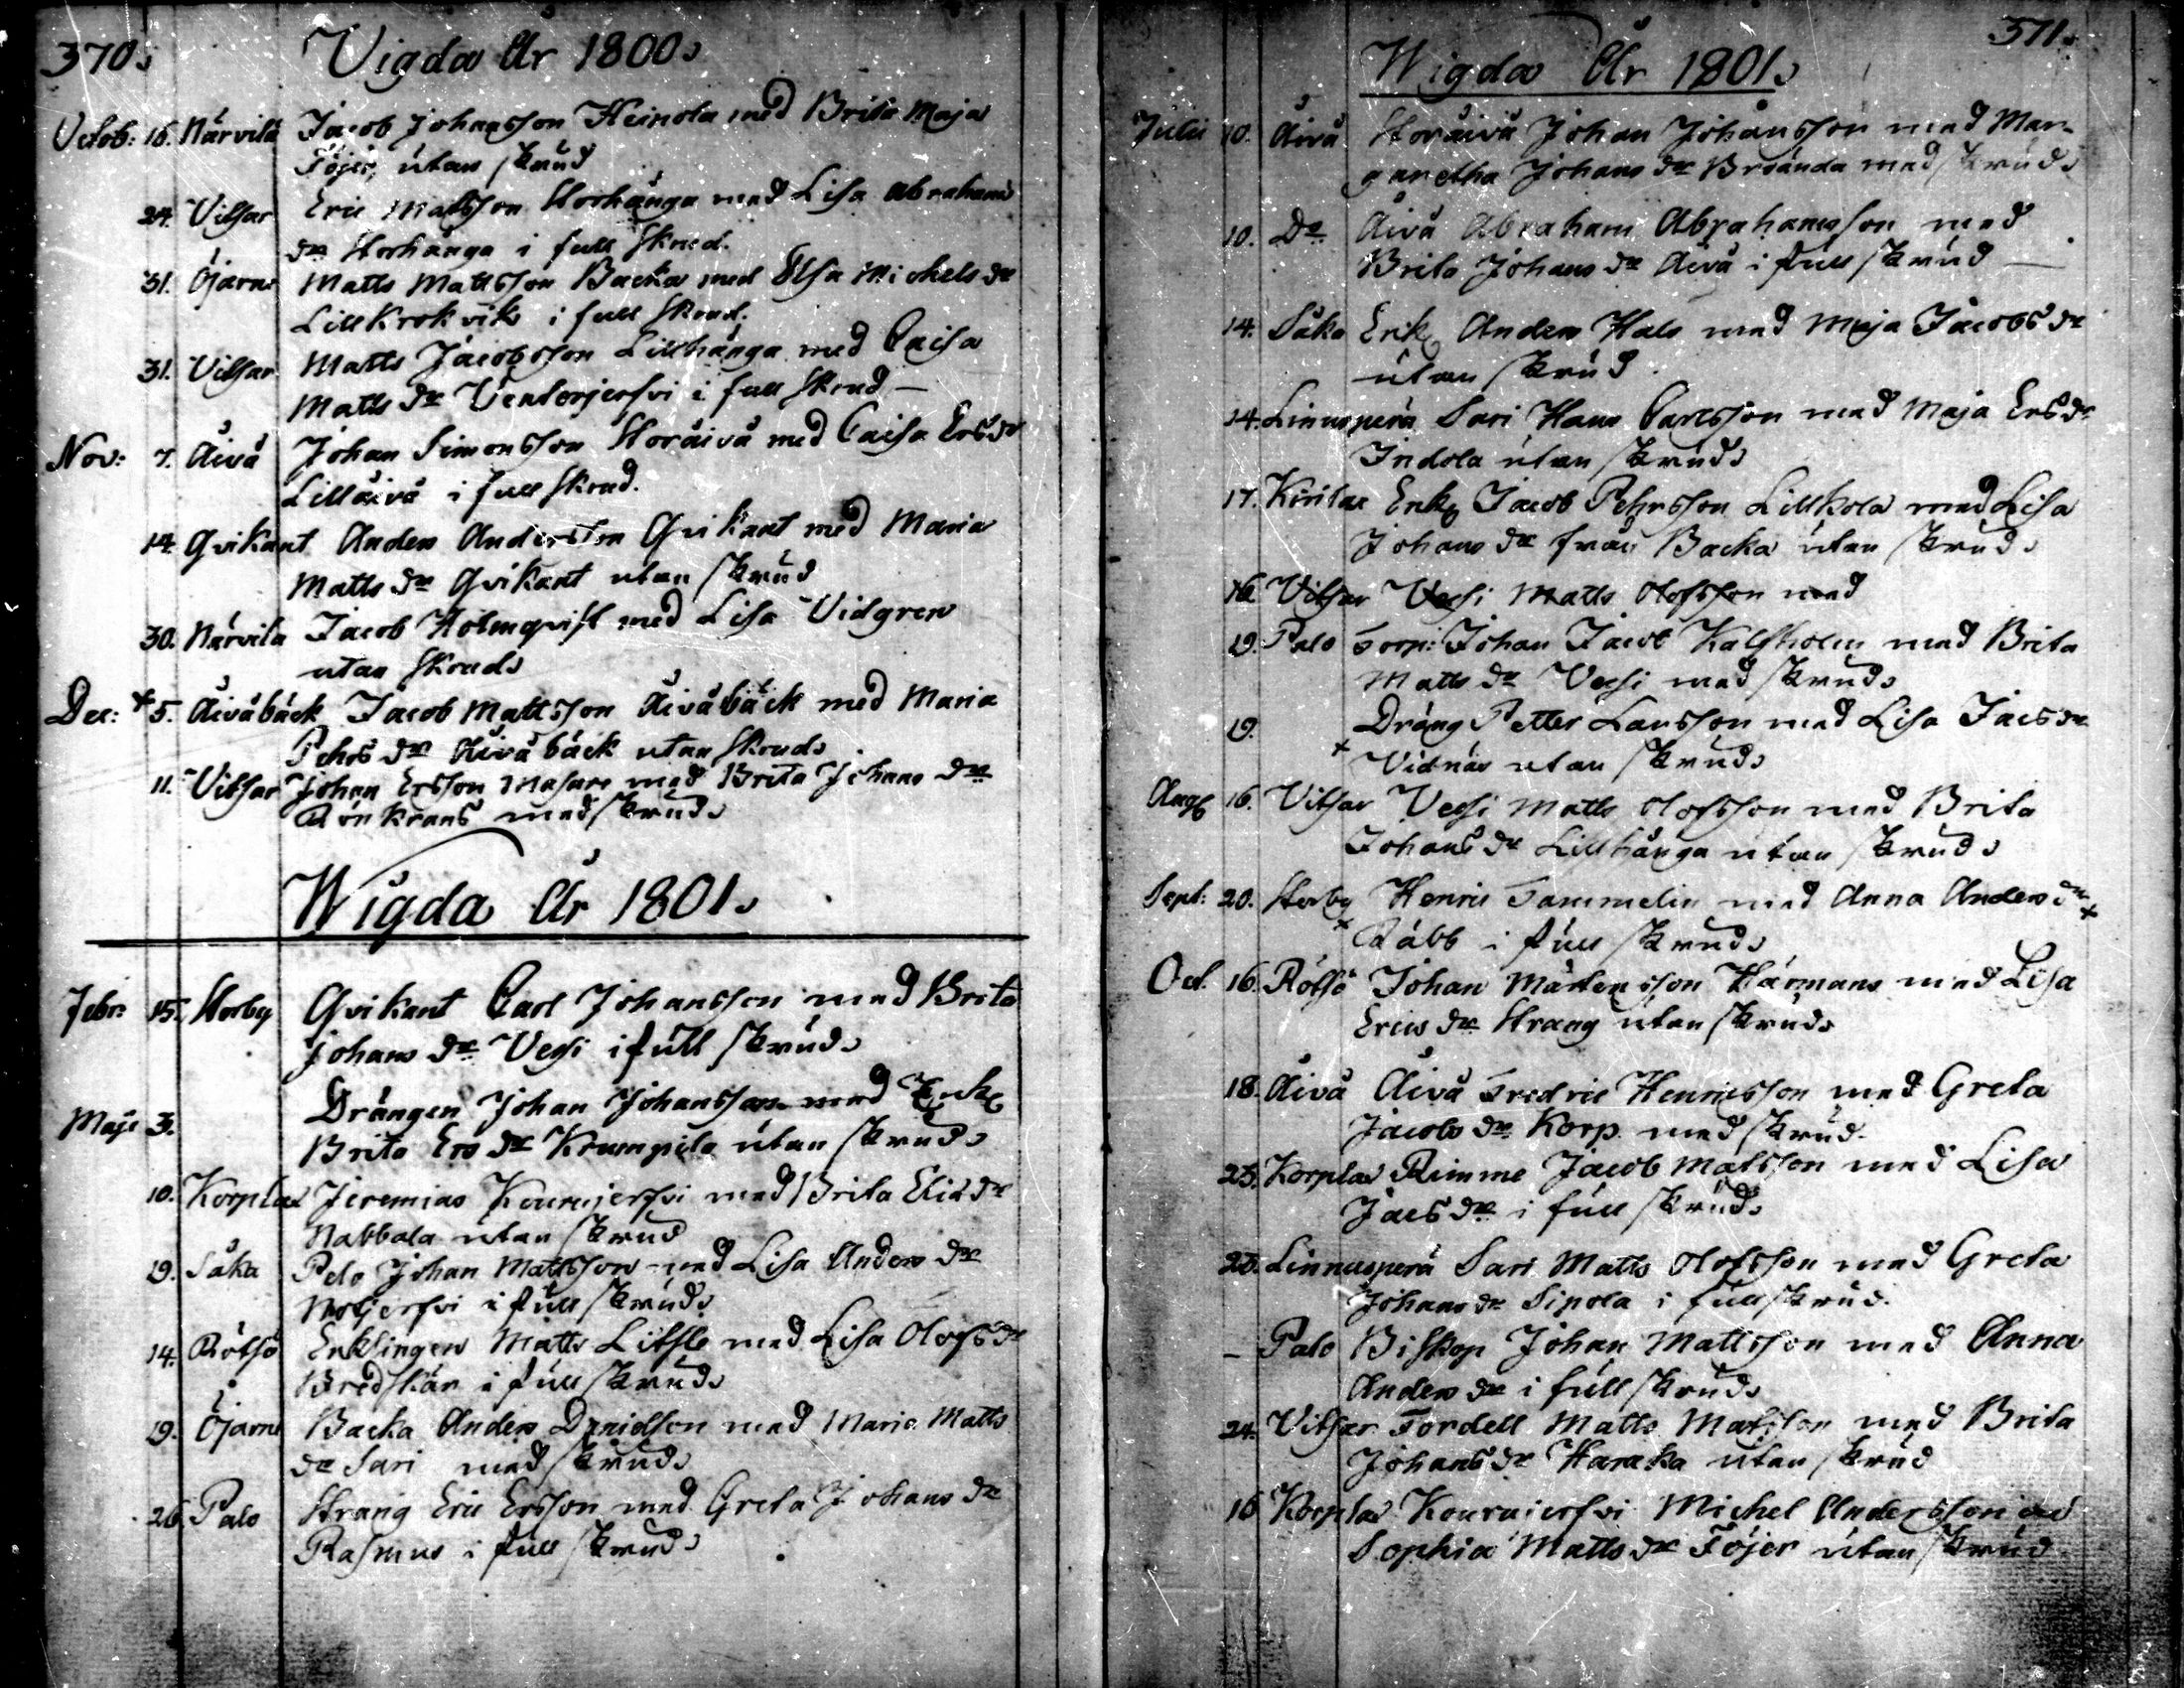 370.
Vigda År 1800.
Octob: 16. Närvilä Jacob Johansson Heinola med Brita Maja
Töjer, utan skrud
24. Vitsar Eric Mattsson Storhånga med Lisa Abrahams
dr Storhånga i full skrud.
31. Öjarne Matts Mattsson Backa med Elsa Michels dr
Lill Krokvik i full skrud.
31. Vitsar Matts Jacobsson Lillhånga med Caisa
Matts dr Venterjerfvi i full skrud
Nov: 7. Åivå Johan Simonsson Storåivå med Caisa Ersdr
Lillåivå i full skrud.
14. Qvikant Anders Andersson Qvikant med Maria
Matts dr Qvikant utan skrud
30. Närvilä Jacob Holmqvist med Lisa Vidgren
utan skrud.
Dec: + 5. Åivåbäck Jacob Mattsson Åivåbäck med Maria
Pehrs dr Åivåbäck utan skrud.
11. Vitsar Johan Ersson Masare med Brita Johans dr
Rönkrans med skrud.
Wigda År 1801.
Febr: 15. Storby Qvikant Carl Johansson med Brita
Johans dr Vessi i full skrud.
Drängen Johan Johansson med Enk
Maji 3.
Brita Ers dr Krumpila utan skrud.
10. Korplax Jeremias Kourujerfvi med Brita Elia dr
Nabbala utan skrud
19. Såka Pelo Johan Mattsson med Lisa Anders dr
i full skrud.
14. Rötsö Enklingen Matts Litsle med Lisa Olofs dr
Bredskär i full skrud.
19. Öjarne Backa Anders Danielson med Maria Matts
dr Sari med skrud.
26. Palo Strang Eric Ersson med Greta Johans dr
Rasmus i full skrud.
371.
Wigda År 1801.
Julii 10. Åivå Storåivå Johan Johansson med Mar-
garetha Johans dr Broända med skrud.
10. Do Åivå Abraham Abrahamsson med
Brita Johans dr Åivå i full skrud
14. Såka Erik Anders Hals med Maja Jacobs dr
utan skrud.
14. Linnusperä Sari Hans Carlsson med Maja Ersdr
Indola utan skrud.
17. Enk Jacob Pehrsson Lillkola med Lisa
Johans dr från Backa utan skrud.
16 Vitsar Vessi Matts Olofsson med
19. Palo Torp: Johan Jacob Kalfholm med Brita
Matts dr Vessi med skrud.
19. Dräng Petter Larsson med Lisa Jacs dr
+ Vidnäs utan skrud.
Aug 16. Vitsar Vessi Matts Olofsson med Brita
Johans dr Lillhånga utan skrud.
Sept: 20. Storby Henric Tammelin med Anna Anders dr +
+ Räbb i full skrud.
Oct. 16. Rötsö Johan Mårtensson Härmans med Lisa
Erics dr Strang utan skrud.
18. Åivå Åivå Fredric Henricsson med Greta
Jacobs dr Korp. med skrud.
23. Korplax Rimme Jacob Matsson med Lisa
Jacs dr i full skrud.
23. Linnusperä Sari Matts Olofsson med Greta
Johans dr Sipola i full skrud.
– Palo Biskop Johan Mattsson med Anna
Anders dr i full skrud.
24. Vitsar Fordell Matts Matsson med Brita
Johans dr Haraka utan skrud
16 Korplax Kourujerfvi Michel Andersson
Sophia Matts dr Töjer utan skrud